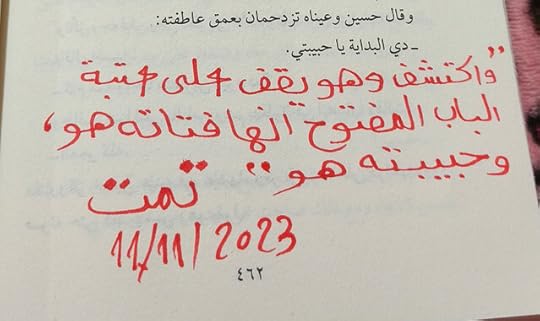 وقال حسين وعيناه تزدحمان بعمق عاطفته:
ـ دي البداية يا حبيبتي.
"واكتشف وهو يقف على عتبة
الباب المفتوح انها فتاته هو،
وحبيبته هو"
تمت
11/11/2023
٤٦٢